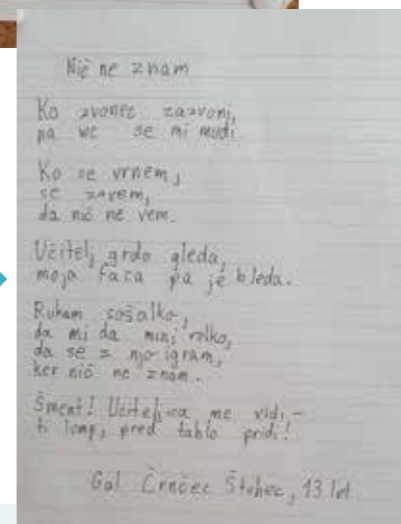 Nič ne znam
Ko zvonec zazvoni,
na wc se mi mudi.
Ko se vrnem,
se zavem,
da nič ne vem.
Učitelj grdo gleda,
moja faca pa je bleda.
Rukam sošolko,
da mi da minj rolko,
da se z njo igram,
ker nič ne znam.
Šment! Učiteljica me vidi, –
ti lump, pred tablo pridi!
Gal Črnčec Štehec, 13 let